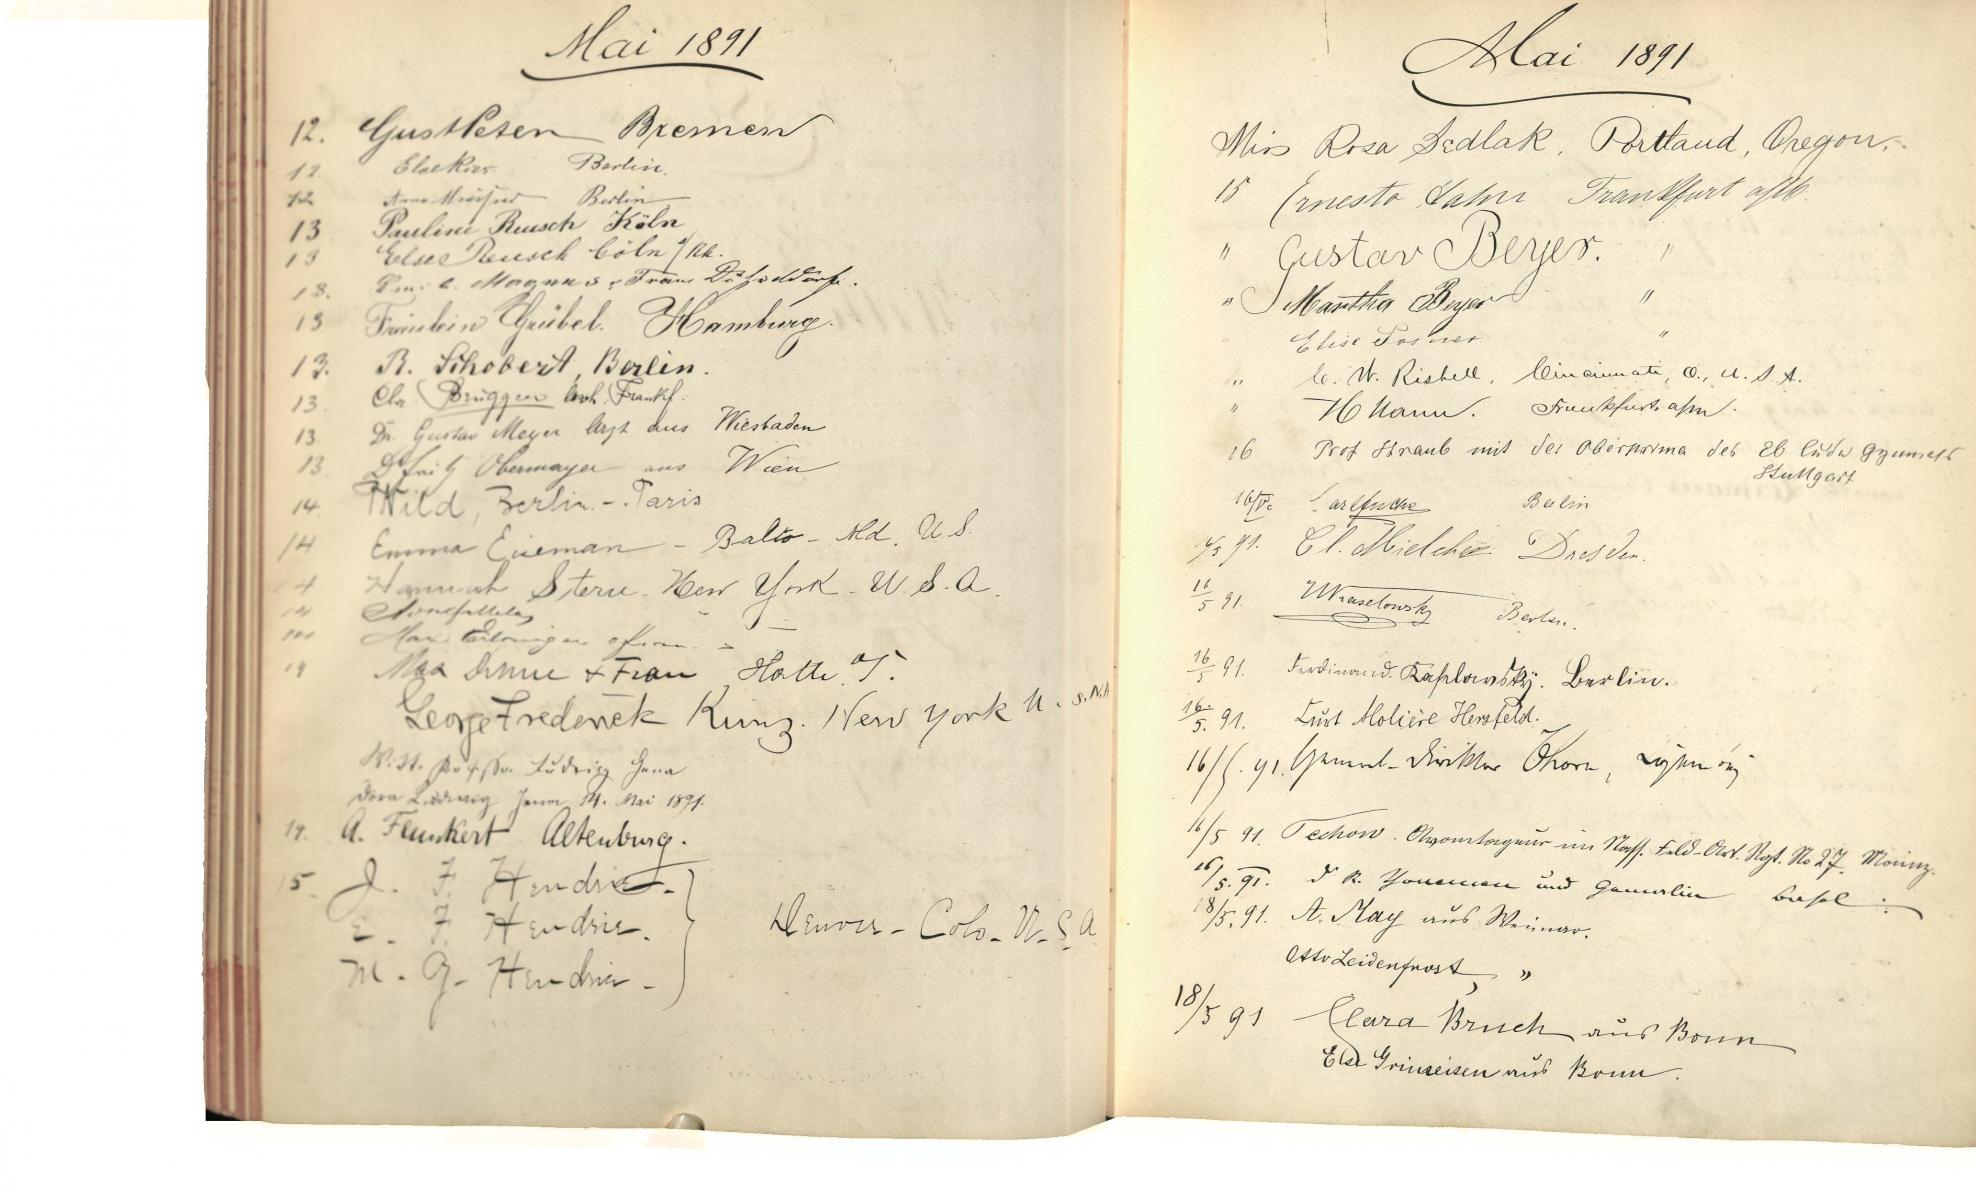 Mai 1891
12. Gust Petsen Bremen
12 Else Berlin.
12 Anna Berlin
13 Pauline Reusch Köln
13 Else Reusch Cöln a/Rh.
13. Magnus & Frau Düsseldorf.
13 Fräulein Grübel. Hamburg.
13. R. Schobert, Berlin.
13. Brüggen Frankf.
13. Dr. Gustav Meyer Arzt aus Wiesbaden
13 Dr Fritz Obermayer aus Wien
14. Wild, Berlin. - Paris
14 Emma Eiseman - Balto - Md. U.S.
14 Hannah Stern. New York - U.S.A.
14
14 Max
14 Max & Frau Halle a/S.
George Frederick Kunz. New York U.S.N.A
Ludwig Jena
Dora Ludwig Jena 14. Mai 1891.
14. A. Flunkert Altenburg.
15. J. F. Hendrie.
E. F. Hendrie. Denver - Colo - U.S.A
M. G. Hendrie -
Mai 1891
Miss Rosa Sedlak, Portland, Oregon.
15 Ernesto Hahn Frankfurt a/M.
" Gustav Beyer. "
" Martha Beyer "
" Elise Posner. "
" C. W. Risbell, Cincinnati, O., U.S.A.
" H Mann. Frankfurt a/m.
16 Prof Straub mit der Oberprima des Eb Ludw Gymnas
Stuttgart
16/V. Carl Fuchs Berlin
16/5 91. Cl. Dresden.
16/5 91. Wraselowsky Berlin.
16/5 91. Ferdinand Kaplowsky. Berlin.
16./5. 91. Curt Molière Hersfeld.
16/5. 91. General-Direktor Thorn,
16/5 91. Techow. Avantageur im Nass. Feld-Art. Rgt. No 27. Mainz.
16/5. 91. und Gemahlin Basel.
18/5. 91. A. May aus Weimar.
Otto Leidenfrost "
18/5 91 Clara Bruch aus Bonn
Else Grineisen aus Bonn.